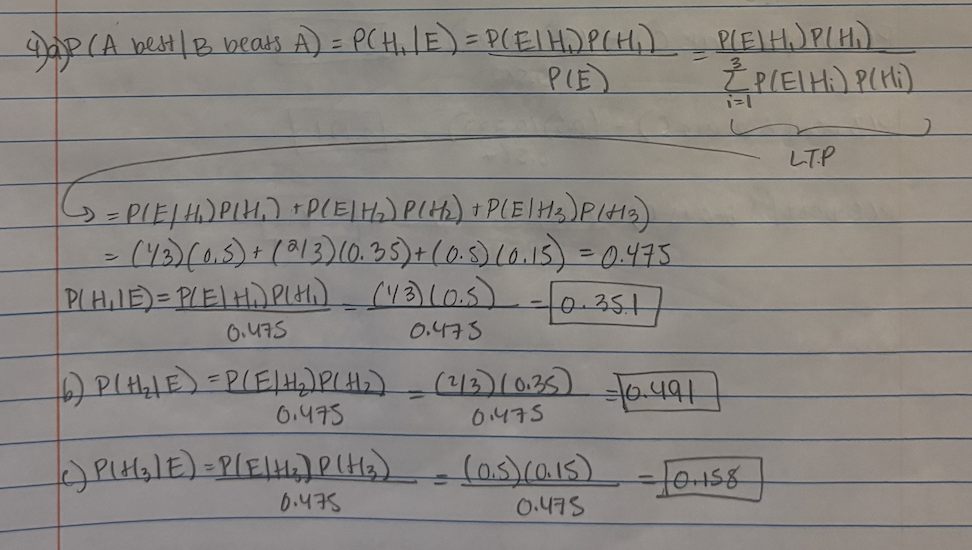 4)a) P(A best | B beats A) = P(H₁|E) = P(E|H₁)P(H₁) / P(E) = P(E|H₁)P(H₁) / Σ³ᵢ₌₁ P(E|Hi) P(Hi)
L.T.P
→ = P(E|H₁)P(H₁) + P(E|H₂)P(H₂) + P(E|H₃)P(H₃)
= (1/3)(0.5) + (2/3)(0.35) + (0.5)(0.15) = 0.475
P(H₁|E) = P(E|H₁)P(H₁) / 0.475 = (1/3)(0.5) / 0.475 = 0.351
b) P(H₂|E) = P(E|H₂)P(H₂) / 0.475 = (2/3)(0.35) / 0.475 = 0.491
c) P(H₃|E) = P(E|H₃)P(H₃) / 0.475 = (0.5)(0.15) / 0.475 = 0.158